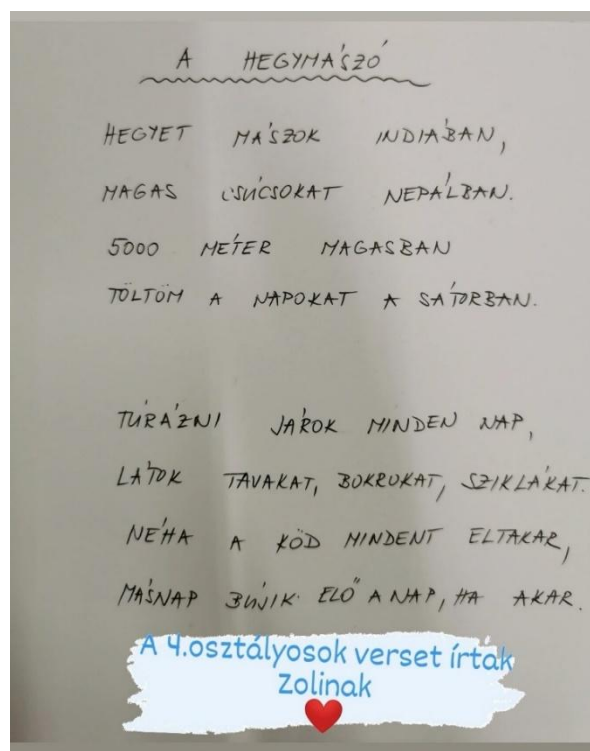 A HEGYMÁSZÓ
HEGYET MÁSZOK INDIÁBAN,
MAGAS CSÚCSOKAT NEPÁLBAN.
5000 MÉTER MAGASBAN
TÖLTÖM A NAPOKAT A SÁTORBAN.
TÚRÁZNI JÁROK MINDEN NAP,
LÁTOK TAVAKAT, BOKROKAT, SZIKLÁKAT.
NÉHA A KÖD MINDENT ELTAKAR,
MÁSNAP BÚJIK ELŐ A NAP, HA AKAR.
A 4.osztályosok verset írtak
Zolinak